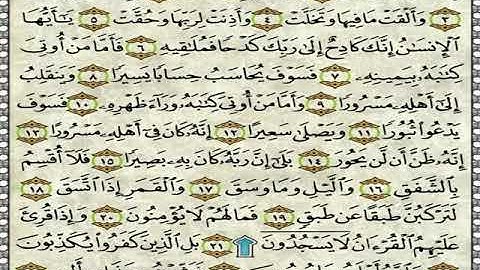 ٣ وَأَلْقَتْ مَا فِيهَا وَتَخَلَّتْ ٤ وَأَذِنَتْ لِرَبِّهَا وَحُقَّتْ ٥ يَٰٓأَيُّهَا
ٱلْإِنسَٰنُ إِنَّكَ كَادِحٌ إِلَىٰ رَبِّكَ كَدْحًا فَمُلَٰقِيهِ ٦ فَأَمَّا مَنْ أُوتِىَ
كِتَٰبَهُۥ بِيَمِينِهِۦ ٧ فَسَوْفَ يُحَاسَبُ حِسَابًا يَسِيرًا ٨ وَيَنقَلِبُ
إِلَىٰٓ أَهْلِهِۦ مَسْرُورًا ٩ وَأَمَّا مَنْ أُوتِىَ كِتَٰبَهُۥ وَرَآءَ ظَهْرِهِۦ ١٠ فَسَوْفَ
يَدْعُوا۟ ثُبُورًا ١١ وَيَصْلَىٰ سَعِيرًا ١٢ إِنَّهُۥ كَانَ فِىٓ أَهْلِهِۦ مَسْرُورًا ١٣
إِنَّهُۥ ظَنَّ أَن لَّن يَحُورَ ١٤ بَلَىٰٓ إِنَّ رَبَّهُۥ كَانَ بِهِۦ بَصِيرًا ١٥ فَلَآ أُقْسِمُ
بِٱلشَّفَقِ ١٦ وَٱلَّيْلِ وَمَا وَسَقَ ١٧ وَٱلْقَمَرِ إِذَا ٱتَّسَقَ ١٨
لَتَرْكَبُنَّ طَبَقًا عَن طَبَقٍ ١٩ فَمَا لَهُمْ لَا يُؤْمِنُونَ ٢٠ وَإِذَا قُرِئَ
عَلَيْهِمُ ٱلْقُرْءَانُ لَا يَسْجُدُونَ ٢١ بَلِ ٱلَّذِينَ كَفَرُوا۟ يُكَذِّبُونَ